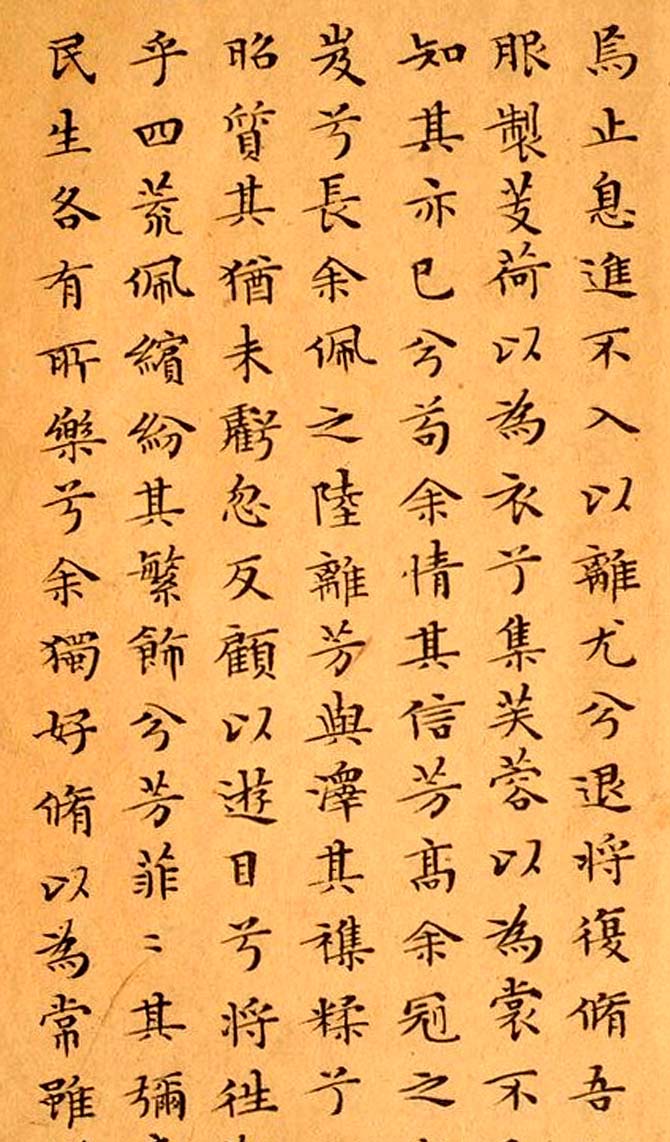 焉止息進不入以離尤兮退将復脩吾
服製芰荷以為衣兮集芙蓉以為裳不
知其亦已兮苟余情其信芳高余冠之
岌兮長余佩之陸離芳與澤其襍糅兮
昭質其猶未虧忽反顧以遊目兮将往
乎四荒佩繽紛其繁飾兮芳菲〻其彌
民生各有所樂兮余獨好脩以為常雖